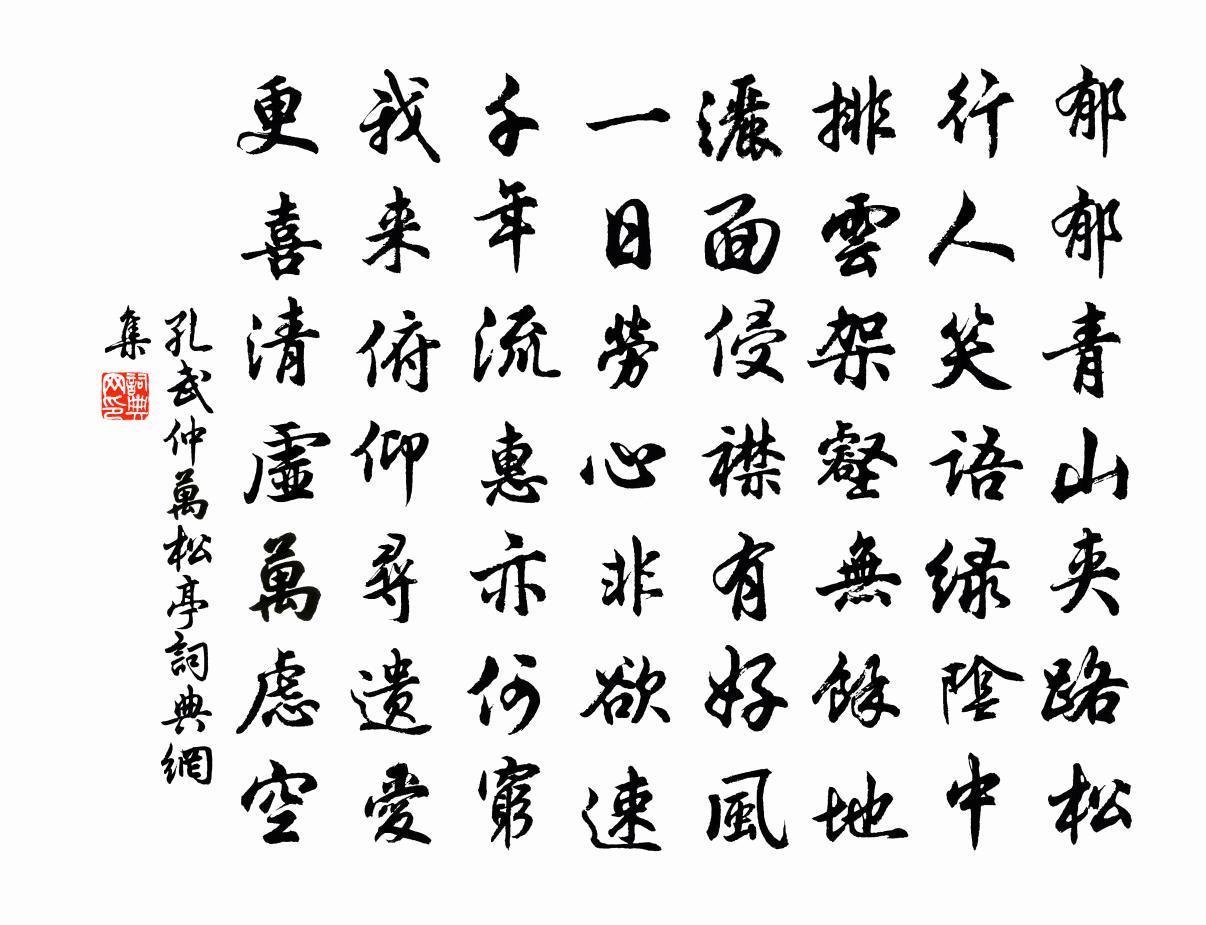 郁郁青山夾路松
行人笑語緑陰中
排雲架壑無餘地
灑面侵襟有好風
一日勞心非欲速
千年流惠亦何窮
我来俯仰尋遺愛
更喜清虛萬慮空
孔武仲萬松亭詞典網
集
詞典
网印